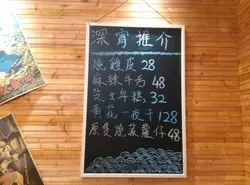 深宵推介
燒雞皮 28
麻辣牛舌 48
芝士年糕 32
黃花一夜干 128
原隻燒菠蘿仔 48